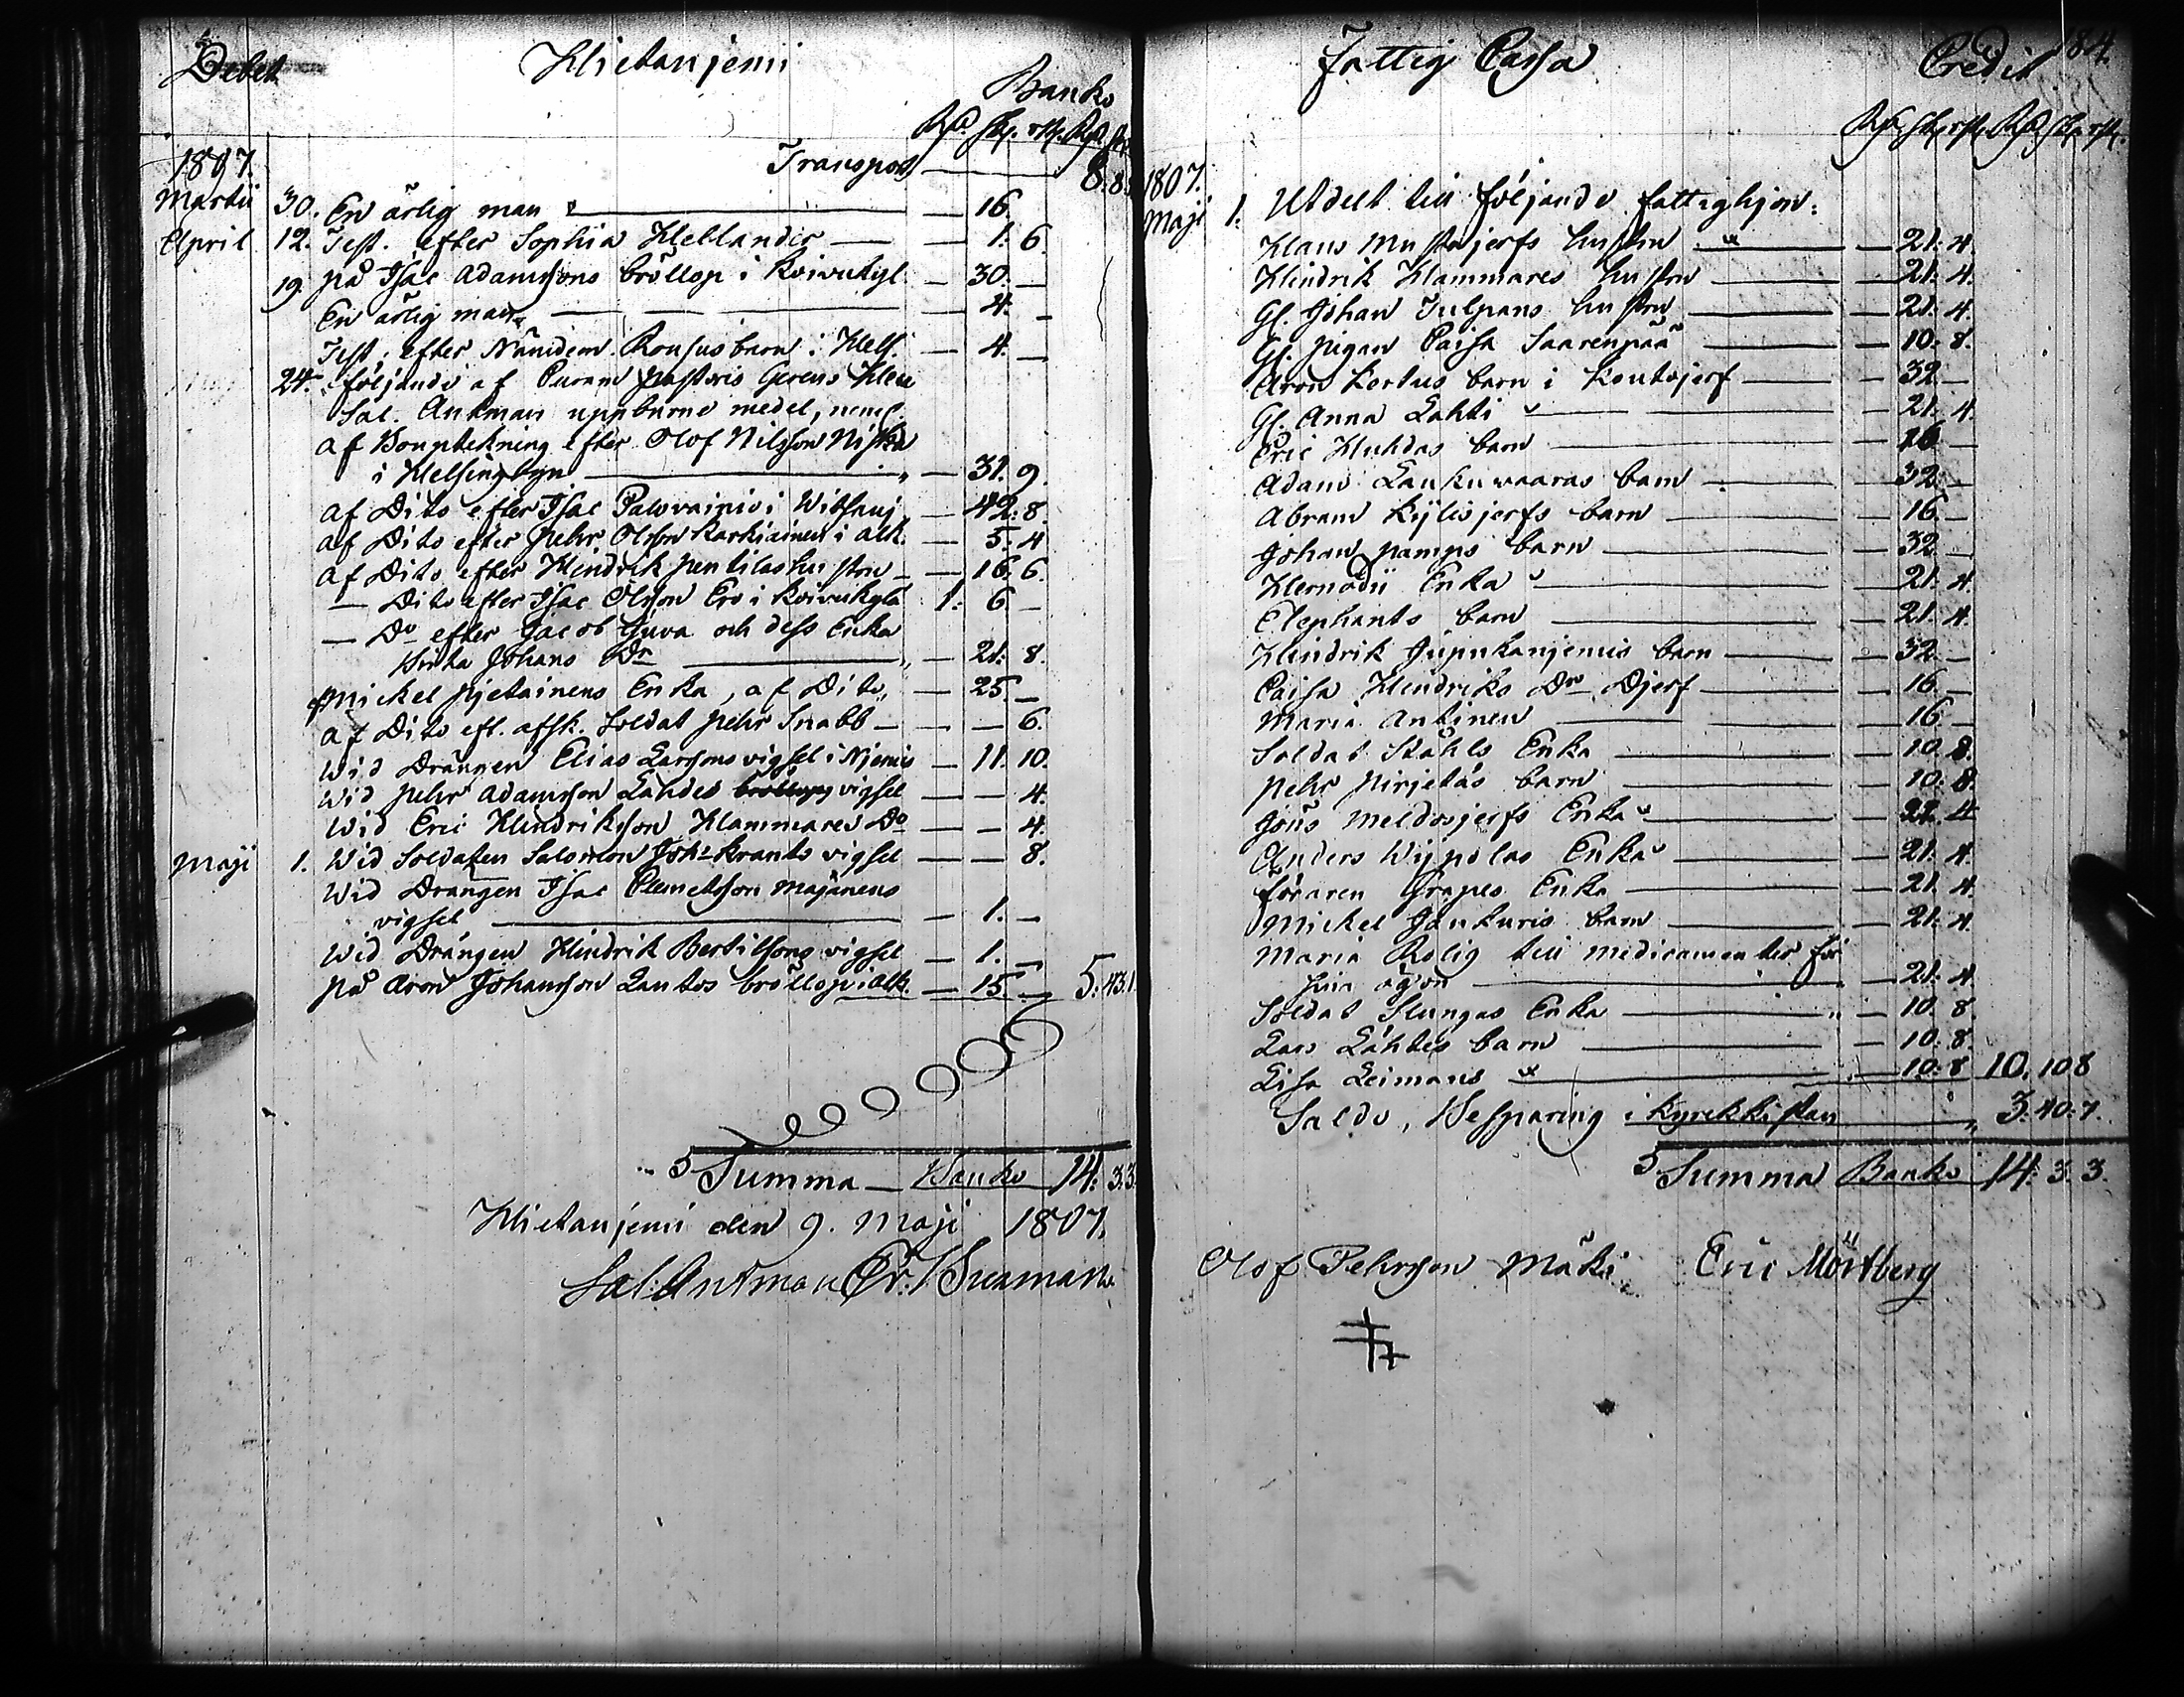 Debet Hietaniemi
Banko
Rd. sk. rst. Rd sk.
1807. Transport — 8. 8.
Martii 30. En ärlig man — 16.
April 12. Test. efter Sophia Hellander — 1. 6.
19. på Isac Adamssons bröllop i Koivukyl. — 30. —
En ärlig man — 4. —
Test. efter Nämdem. Rousus barn i Hels. — 4. —
24. följande af
Sal. Antman uppburne medel, neml.
af Bouptekning efter Olof Nilsson Niska
i Helsingbyn — 31. 9.
af Dito efter Isac Palovainio i Witsanj. — 42. 8.
af Dito efter Pehr Olsson Karkiainen i Alk. — 5. 4
af Dito efter Hindrik Pentilas hustru — 16. 6.
— Dito efter Isac Olsson Ero i Koivukylä 1: 6 —
— Do efter Jacob Juva och dess Enka
Brita Johans Dr — 21. 8.
Mickel Pjetainens Enka, af Dito — 25 —
af Dito eft. afsk. Soldat Pehr Snabb — — 6.
Wid Drängen Elias Larssons vigsel i Njemis — 11. 10.
Wid Pehr Adamsson Lahdes bröllops vigsel — — 4.
Wid Eric Hindriksson Hammares Do — — 4.
Maji 1. Wid Soldaten Salomon Joh: Krants vigsel — — 8.
Wid Drängen Isac Clemetsson Majanens
vigsel — 1. —
Wid Drängen Hindrik Bertilssons vigsel — 1. —
På Aron Johansson Lantos bröllop i Alk. — 15. — 5. 43. 1.
Summa — Banko 14: 3. 3.
Hietaniemi den 9. Maji 1807.
Sal: Antman Er. Burman
Fattig Cassa Credit 84.
Rd. sk. rst. Rd sk. rst.
1807.
Maji 1. Utdelt till följande fattighjon:
Klaus Mustajerfs hustru — 21. 4.
Hindrik Hammares hustru — 21. 4.
Gl. Johan Tulpans hustru — 21. 4.
Gl. Pigan Caisa Saarenpää — 10: 8.
Aron Kertus barn i Koutojerf — 32 —
Gl. Anna Lahti — 21. 4.
Eric Huhdas barn — 16 —
Adam Laukuwaaras barn — 32. —
Abram Kylisjerfs barn — 16. —
Johan Pamps barn — 32 —
Hernodii Enka — 21. 4.
Elephants barn — 21. 4.
Hindrik Jupukanjemis barn — 32 —
Caisa Hindriks Dr Djerf — 16. —
Maria Antinen — 16 —
Soldat Ståhls Enka — 10. 8.
Pehr Pirjetäs barn — 10: 8.
Jöns Meldosjerfs Enka — 21. 4
Anders Wijpolas Enka — 21. 4.
föraren Grapes Enka — 21. 4.
Mickel Jankuris barn — 21. 4
Maria Rolig till medicamenter för
sina ögon — 21. 4.
Soldat Slungas Enka — 10. 8.
Lars Lahtes barn — 10: 8.
Lisa Leimans — 10: 8 10. 10 8
Saldo, Besparing i Kyrckkistan — 3. 40. 7.
Summa Banko 14: 3. 3.
Olof Pehrsson Mäki Eric Mörtberg